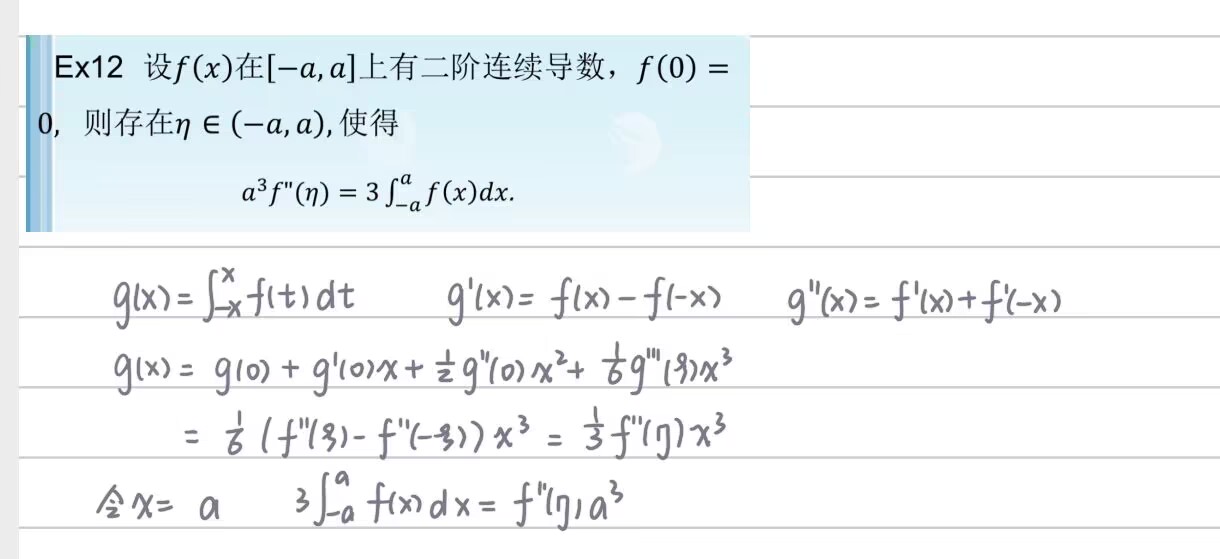 Ex12 设f(x)在[−a, a]上有二阶连续导数，f(0) =
0, 则存在η ∈ (−a, a), 使得
a³f"(η) = 3 ∫₋ₐᵃ f(x)dx.
g(x) = ∫₋ₓˣ f(t) dt g'(x) = f(x) − f(−x) g''(x) = f'(x) + f'(−x)
g(x) = g(0) + g'(0)x + ½ g''(0) x² + 1/6 g'''(ξ)x³
= 1/6 (f''(ξ) − f''(−ξ)) x³ = 1/3 f''(η) x³
令 x = a 3∫₋ₐᵃ f(x) dx = f''(η) a³